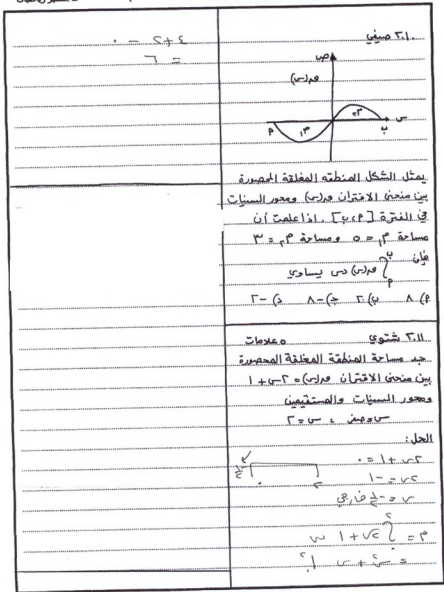 ٢٠١٠ صيفي
ص
ق(س)
س
م٢
م١
ب
٢
يمثل الشكل المنطقه المغلقة المحصورة
بين منحنى الاقتران ق(س) ومحور السينات
في الفترة [٢، ب]. اذا علمت أن
مساحة م١ = ٥ ومساحة م٢ = ٣
فإن
ب
∫ ق(س) دس يساوي
٢
٨ ب) ٢ ج) -٨ د) -٢
٢٠١١ شتوي ٥ علامات
جد مساحة المنطقة المغلقة المحصورة
بين منحنى الاقتران ق(س) = ٢س + ١
ومحور السينات والمستقيمين
س = صفر ، س = ٢
الحل:
٢س + ١ = ٠
٢س = -١
٢
م = ∫ ٢س + ١
= س٢ + س
٤ + ٢ - ٠
= ٦